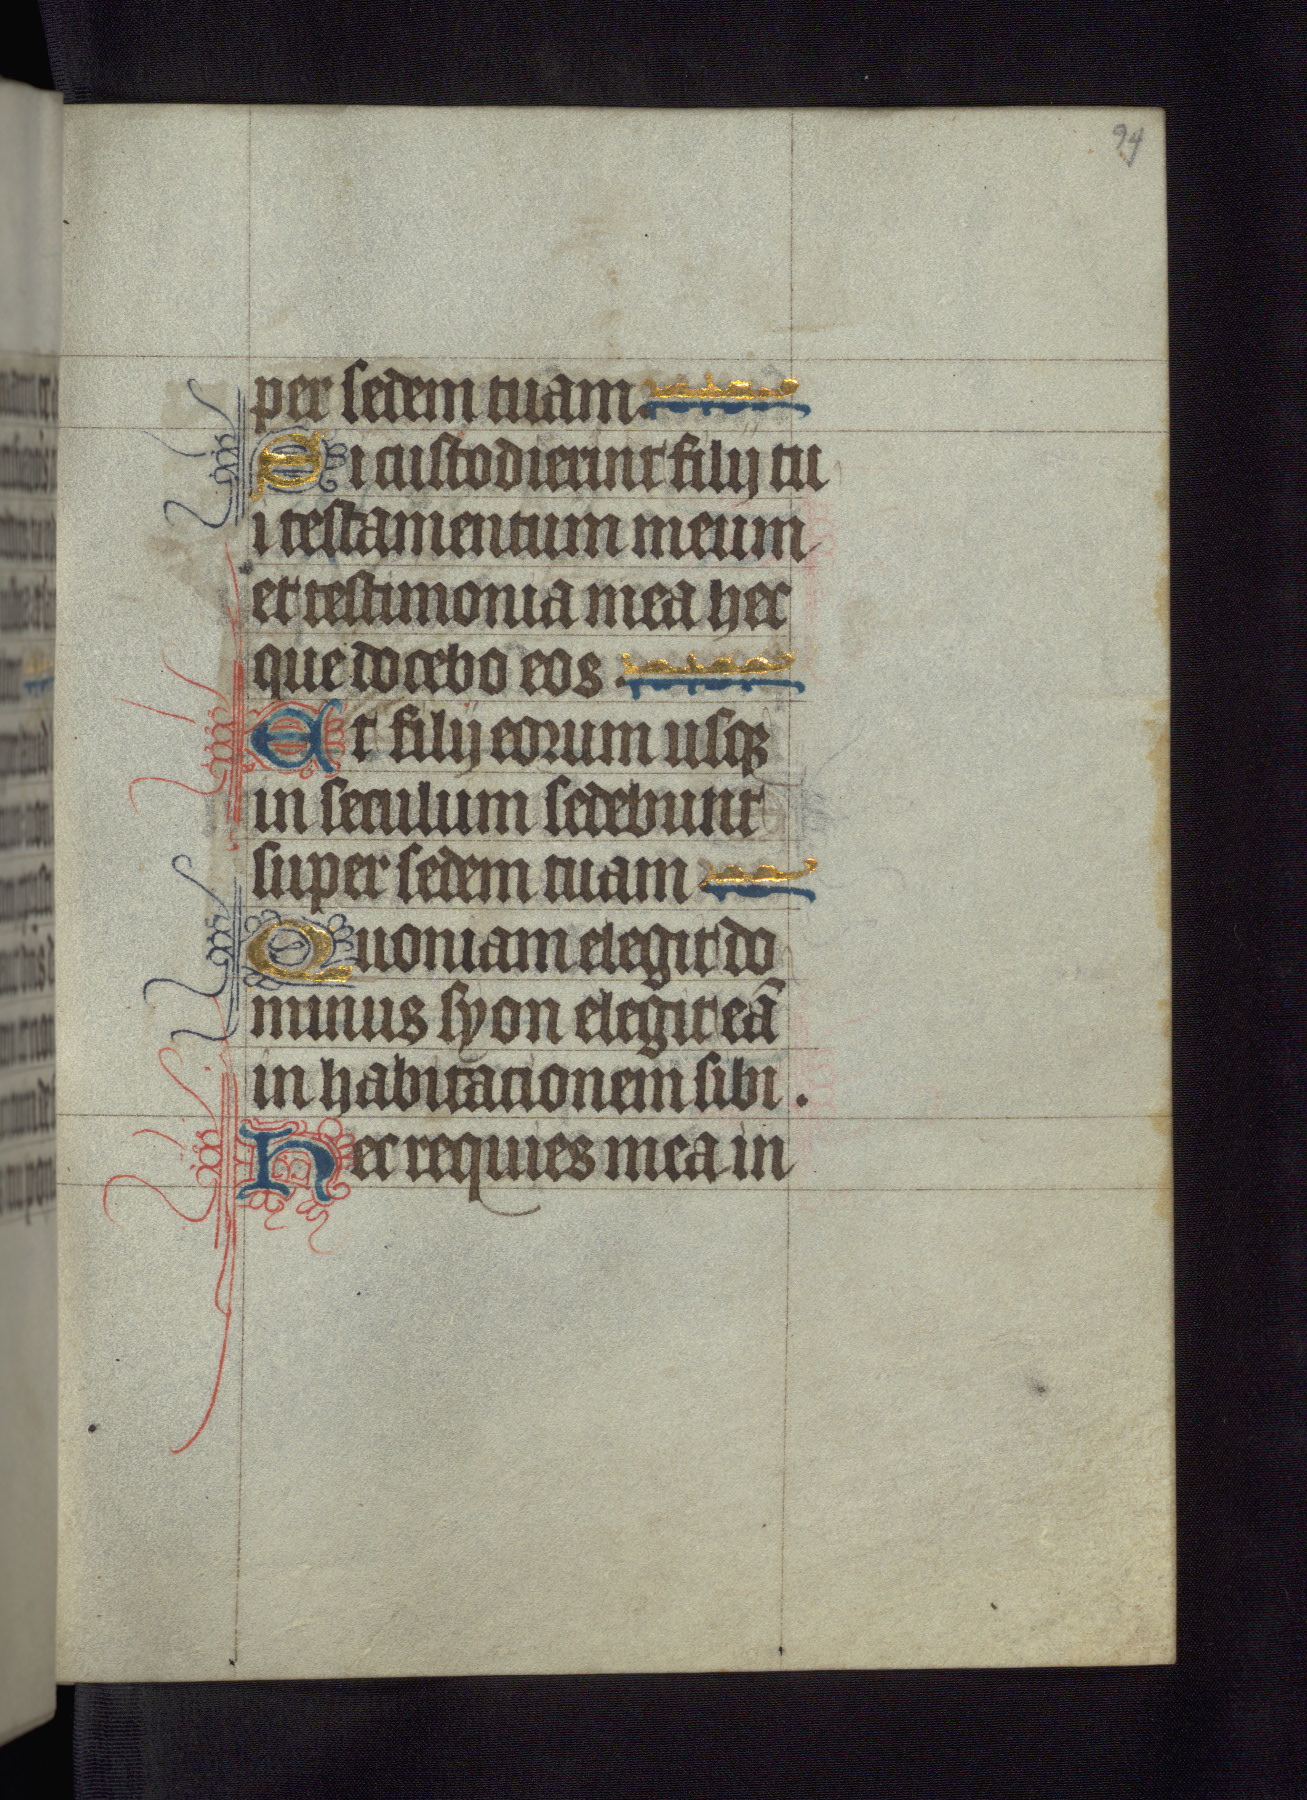 per sedem tuam.
Si custodierint filij tu
i testamentum meum
et testimonia mea hec
que docebo eos .
Et filij eorum usqꝫ
in seculum sedebunt
super sedem tuam
Quoniam elegit do
minus syon elegit eā
in habitacionem sibi .
Hec requies mea in